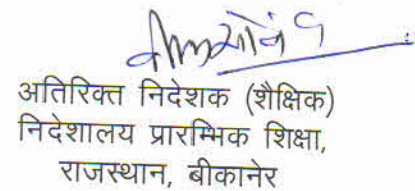 अतिरिक्त निदेशक (शैक्षिक)
निदेशालय प्रारम्भिक शिक्षा,
राजस्थान, बीकानेर